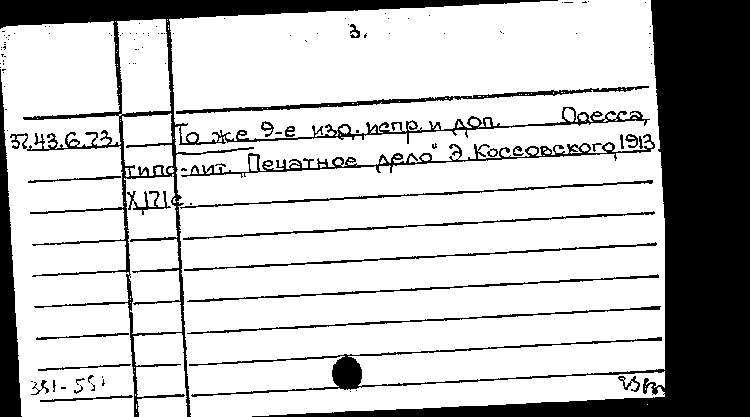 3.
37.43.6.73. То же 9-е изд. испр. и доп. Одесса,
типо-лит. „Печатное дело" Э. Коссовского, 1913.
X,171 с.
351-551